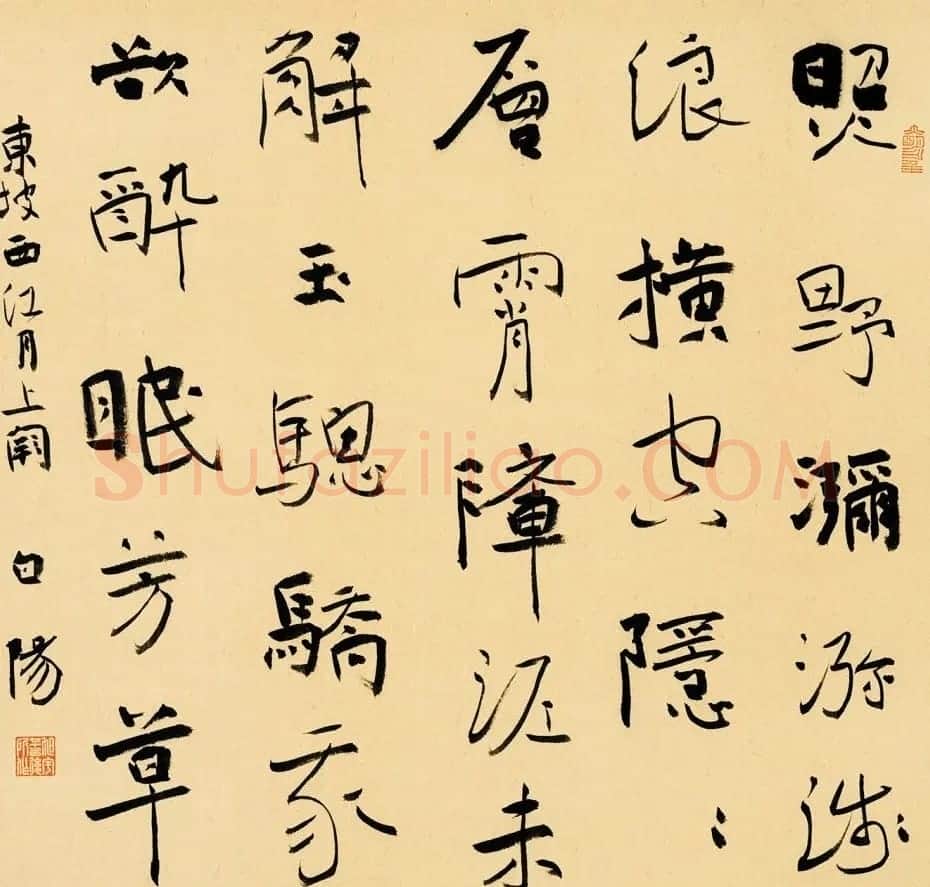 照野瀰㳽浅〻
浪横空隱〻
層霄障泥未
解玉驄驕我
欲酔眠芳草
東坡西江月上闋 白陽
Shufaziliao.COM